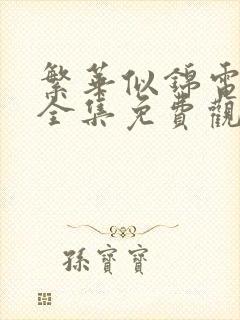 繁華似錦電
全集免費觀
孫寶寶